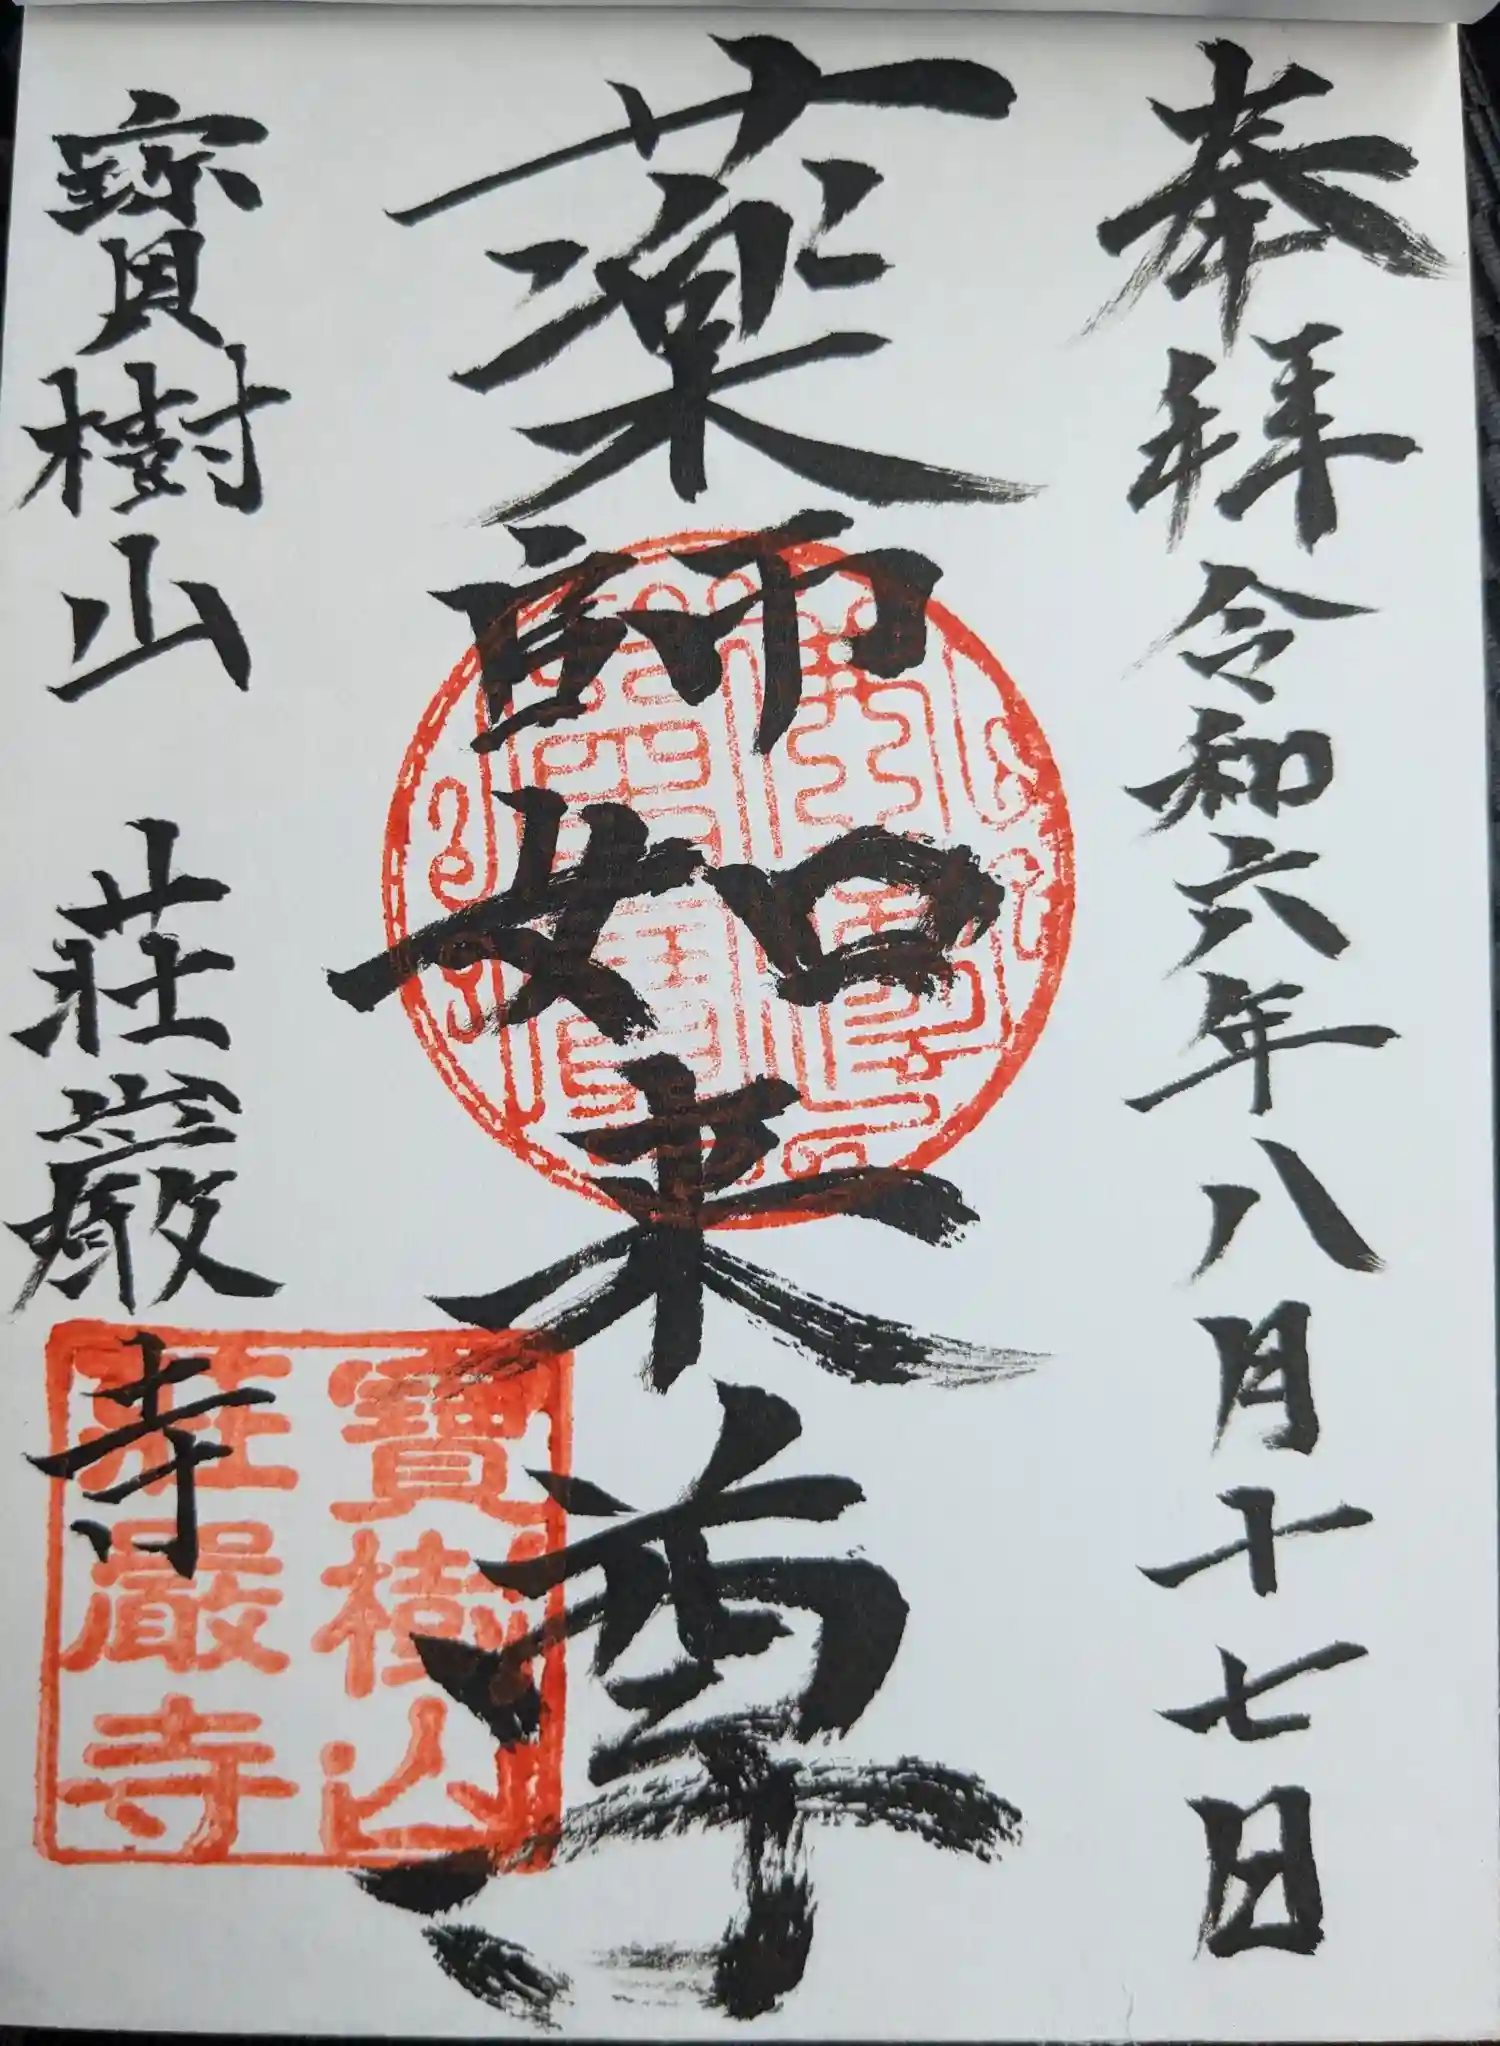 奉拝 令和六年八月十七日
薬師如来尊
寳樹山 莊嚴寺
寶樹山
莊嚴寺